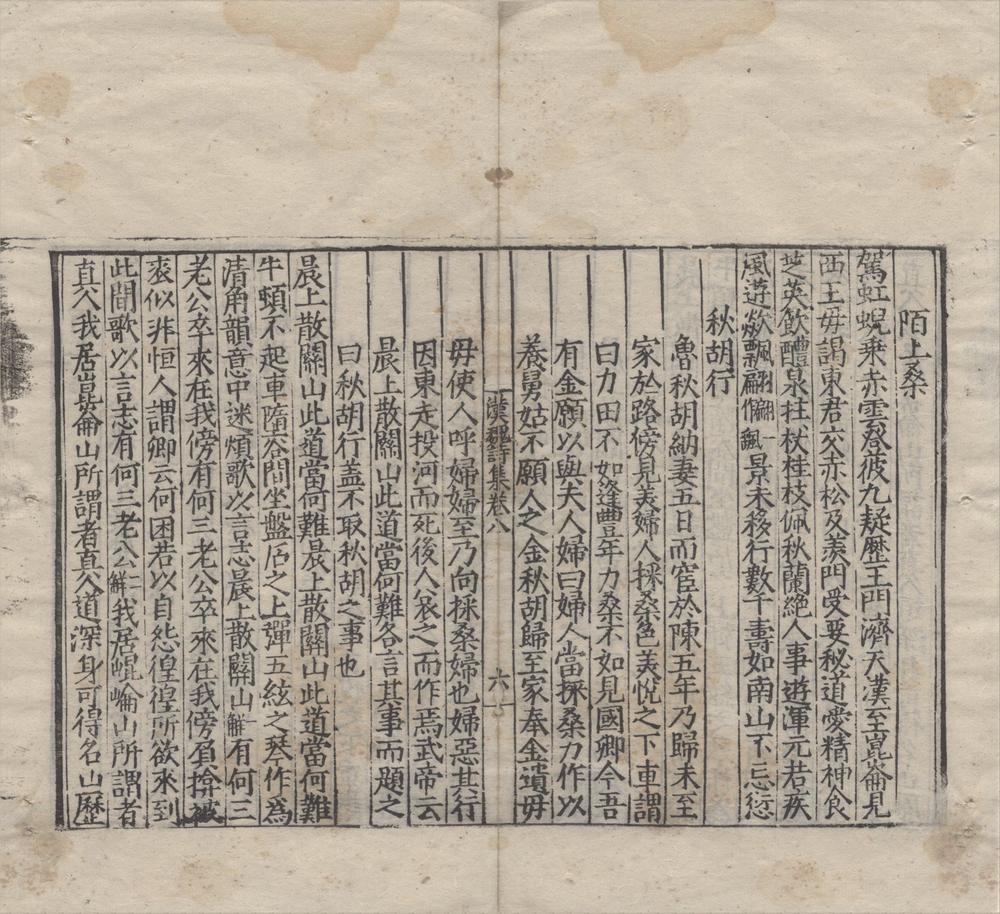 陌上桑
駕虹蜺乗赤雲登彼九疑歷王門濟天漢至崑崙見
西王母謁東君交赤松及羨門受要秘道愛精神食
芝英飲醴泉拄杖桂枝佩秋蘭絶人事遊渾元若疾
風遊歘飄翩翩一作飄景未移行數千壽如南山不忘愆
秋胡行
魯秋胡納妻五日而宦於陳五年乃歸未至
家於路傍見美婦人採桑色美悅之下車謂
曰力田不如逢豐年力桑不如見國卿今吾
有金願以與夫人婦曰婦人當採桑力作以
養舅姑不願人之金秋胡歸至家奉金遺毋
漢魏詩集卷八
六
毋使人呼婦婦至乃向採桑婦也婦惡其行
因東走投河而死後人哀之而作焉武帝云
晨上散關山此道當何難各言其事而題之
曰秋胡行盖不取秋胡之事也
晨上散關山此道當何難晨上散關山此道當何難
牛頓不起車墮谷間坐盤石之上彈五絃之琴作爲
清角韻意中迷煩歌以言志晨上散關山一解有何三
老公卒來在我傍有何三老公卒來在我傍負揜被
裘似非恒人謂卿云何困苦以自怨徨徨所欲來到
此間歌以言志有何三老公二解我居崐崘山所謂者
真人我居崑崙山所謂者真人道深身可得名山歷